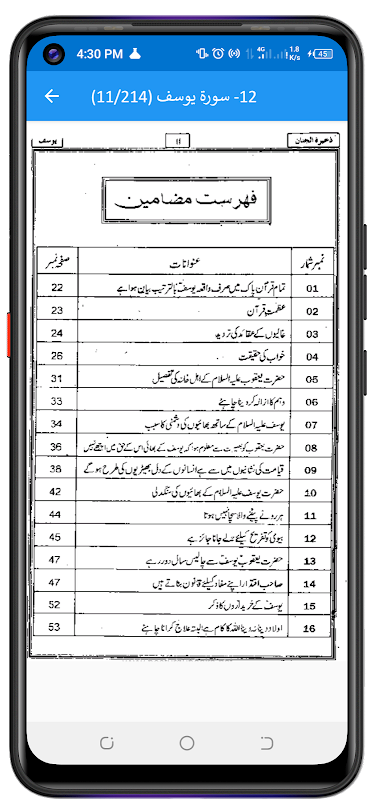 4:30 PM
4G
1.8
K/s
45
12- سورة يوسف (11/214)
ذخیرۃ الجنان
۱۱
یوسف
فہرست مضامین
نمبر شمار عنوانات صفحہ نمبر
01 تمام قرآن پاک میں صرف واقعہ یوسف بالترتیب بیان ہوا ہے 22
02 عظمت قرآن 23
03 غالیوں کے عقائد کی تردید 24
04 خواب کی حقیقت 26
05 حضرت یعقوب علیہ السلام کے اہل خانہ کی تفصیل 31
06 وہم کا ازالہ کر دینا چاہئے 33
07 یوسف علیہ السلام کے ساتھ بھائیوں کی دشمنی کا سبب 34
08 حضرت یعقوب کو بصیرت سے معلوم ہوا کہ یوسف کے بھائی اس کے حق میں اچھے نہیں 36
09 قیامت کی نشانیوں میں سے ہے انسانوں کے دل بھیڑیوں کی طرح ہو گے 38
10 حضرت یوسف علیہ السلام کے بھائیوں کی سنگدلی 42
11 ہر رونے پیٹنے والا سچا نہیں ہوتا 44
12 بیوی کو تفریح کیلئے لے جانا جائز ہے 45
13 حضرت یعقوب یوسف سے چالیس سال دور رہے 47
14 صاحب اقتدار اپنے مفاد کیلئے قانون بناتے ہیں 47
15 یوسف کے خریداروں کا ذکر 52
16 اولاد دینا نہ دینا اللہ کا کام ہے البتہ علاج کرانا چاہئے 53